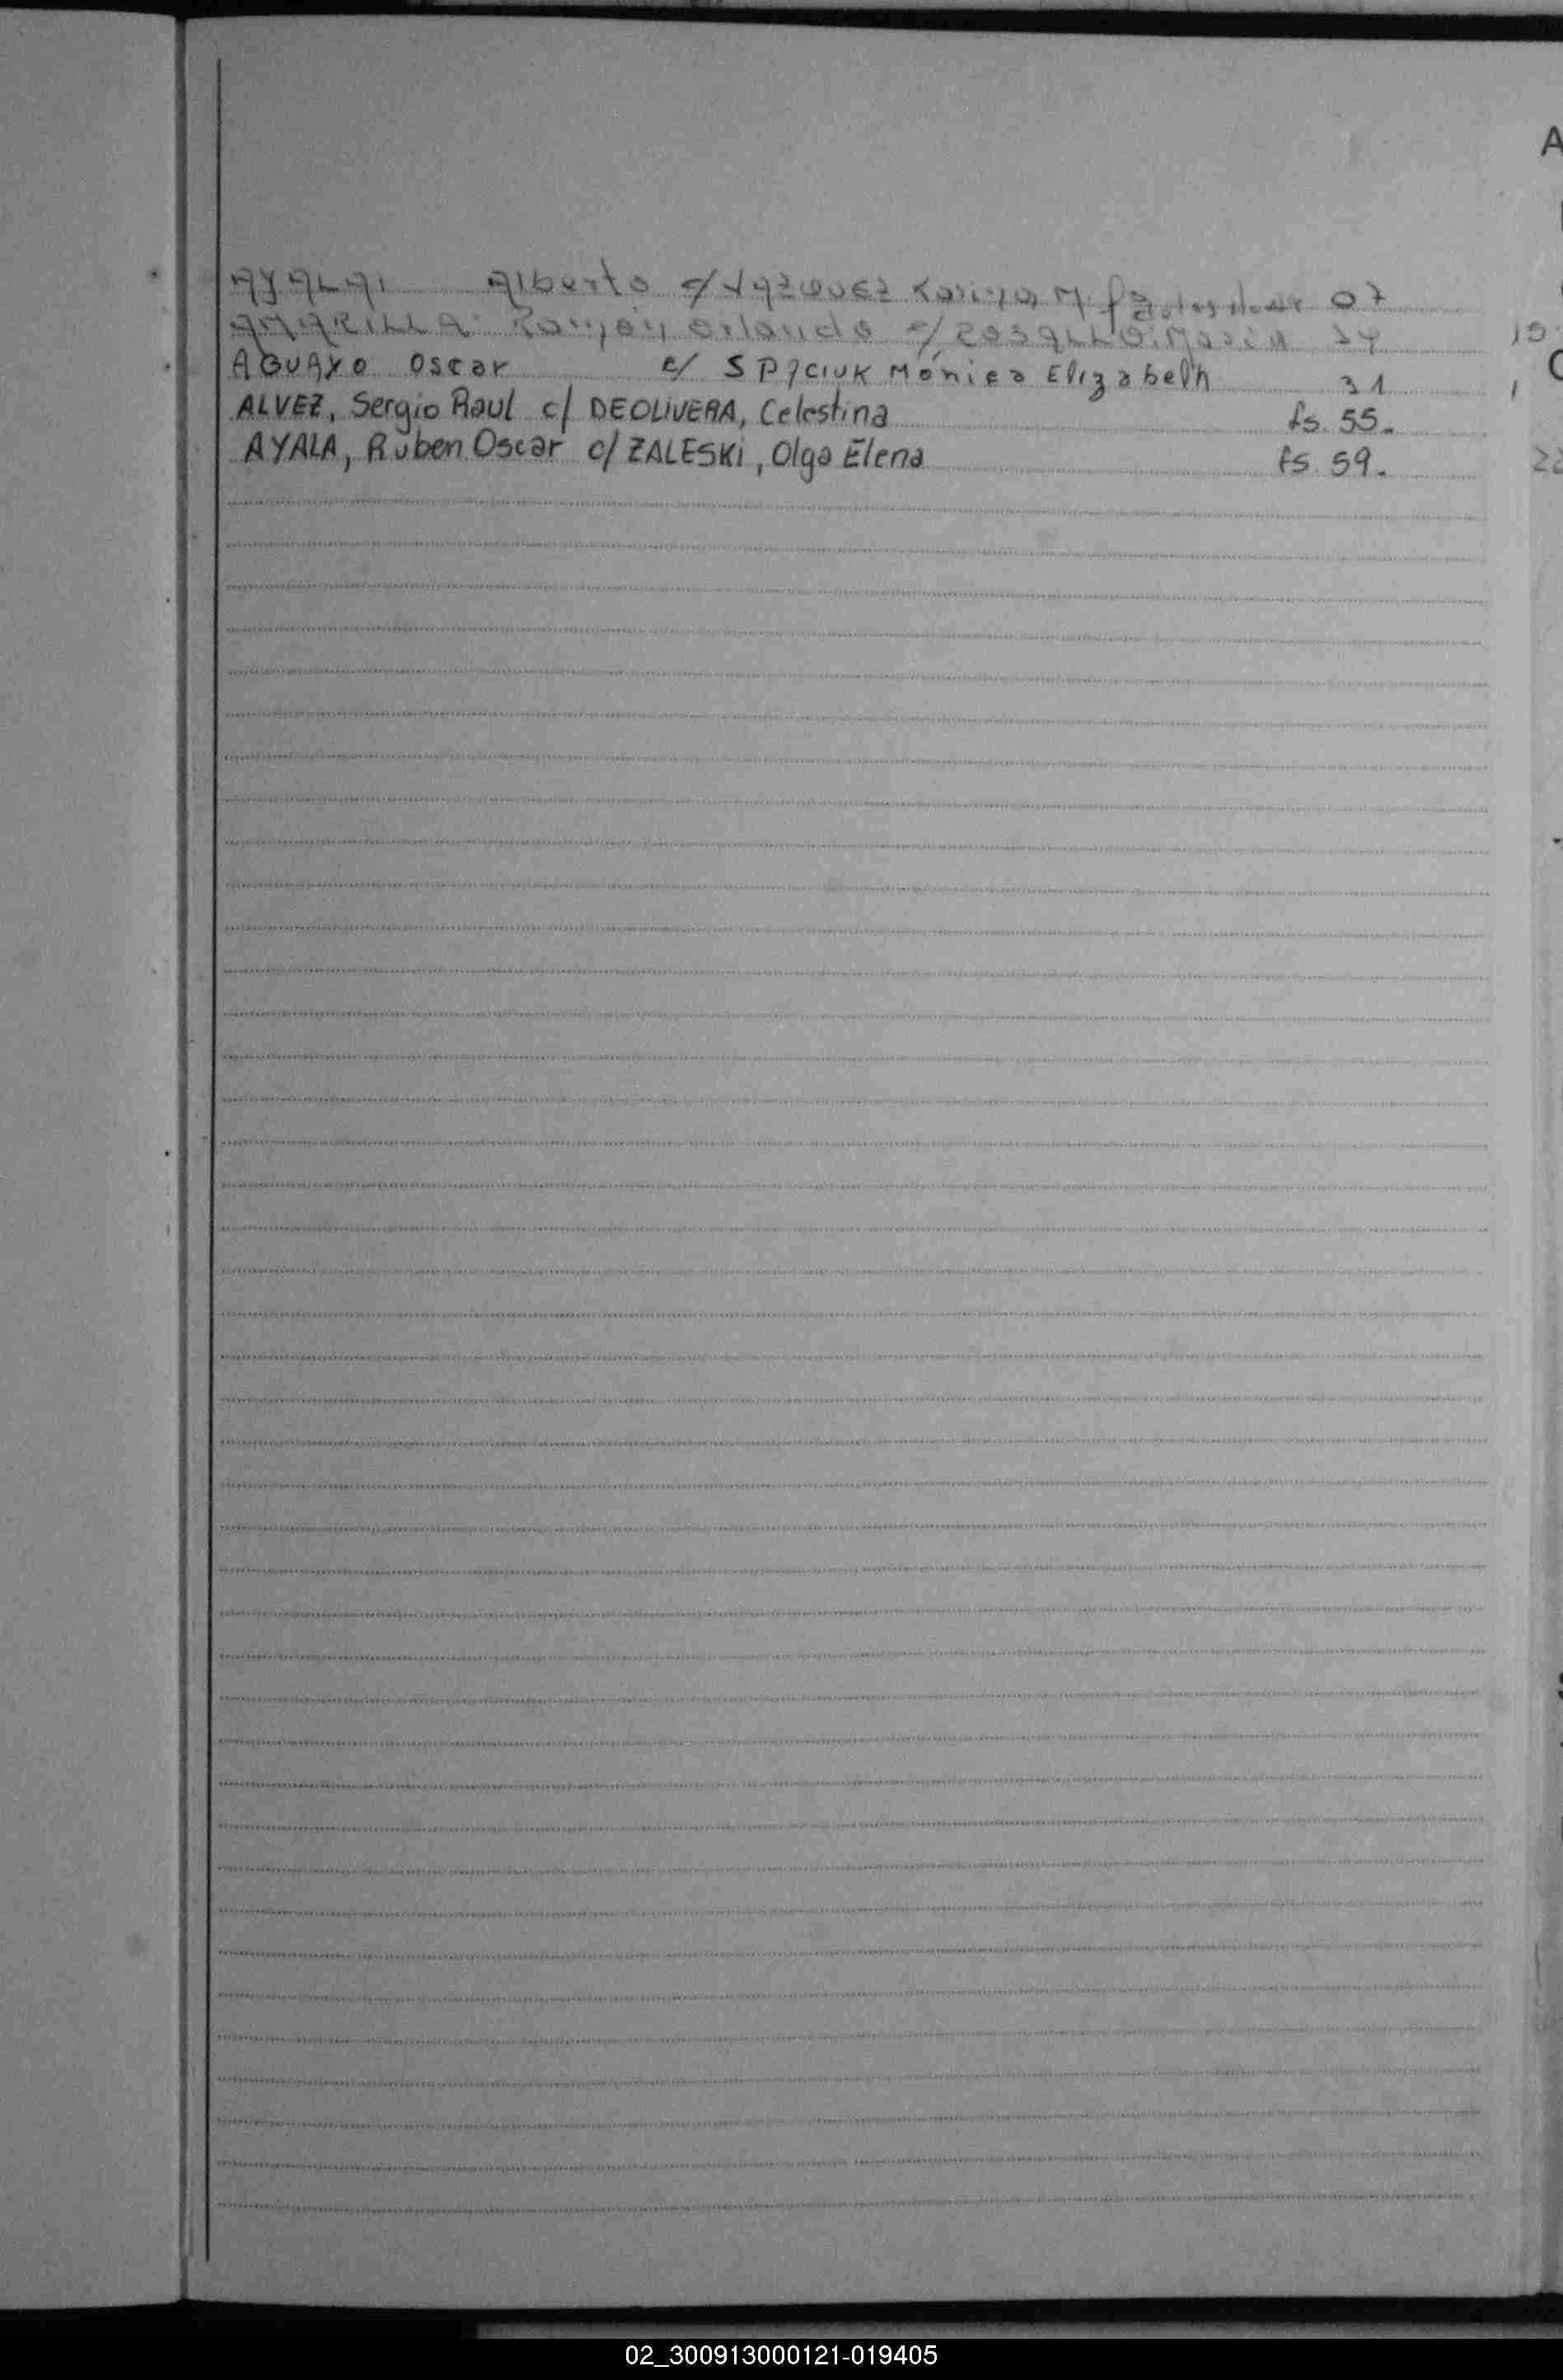 AYALA Alberto c/ VAZQUEZ Karina M. 07
AMARILLA Ramón Orlando c/ María
AGUAYO Oscar c/ SPACIUK Mónica Elizabeth 31
ALVEZ, Sergio Raul c/ DEOLIVERA, Celestina fs. 55.
AYALA, Ruben Oscar c/ ZALESKi, Olga Elena fs. 59.
02_300913000121-019405